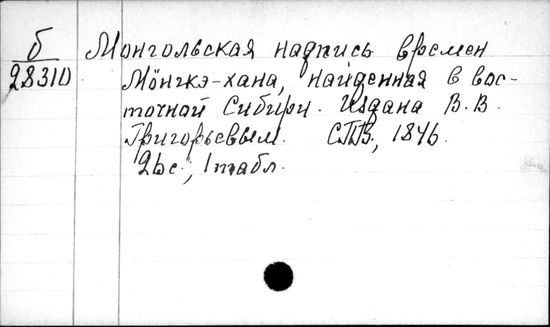 б
28310
Монгольская надпись времен
Мöнгкэ-хана, найденная в вос-
точной Сибири. Издана В. В.
Григорьевым. СПБ., 1846.
26с., 1 табл.